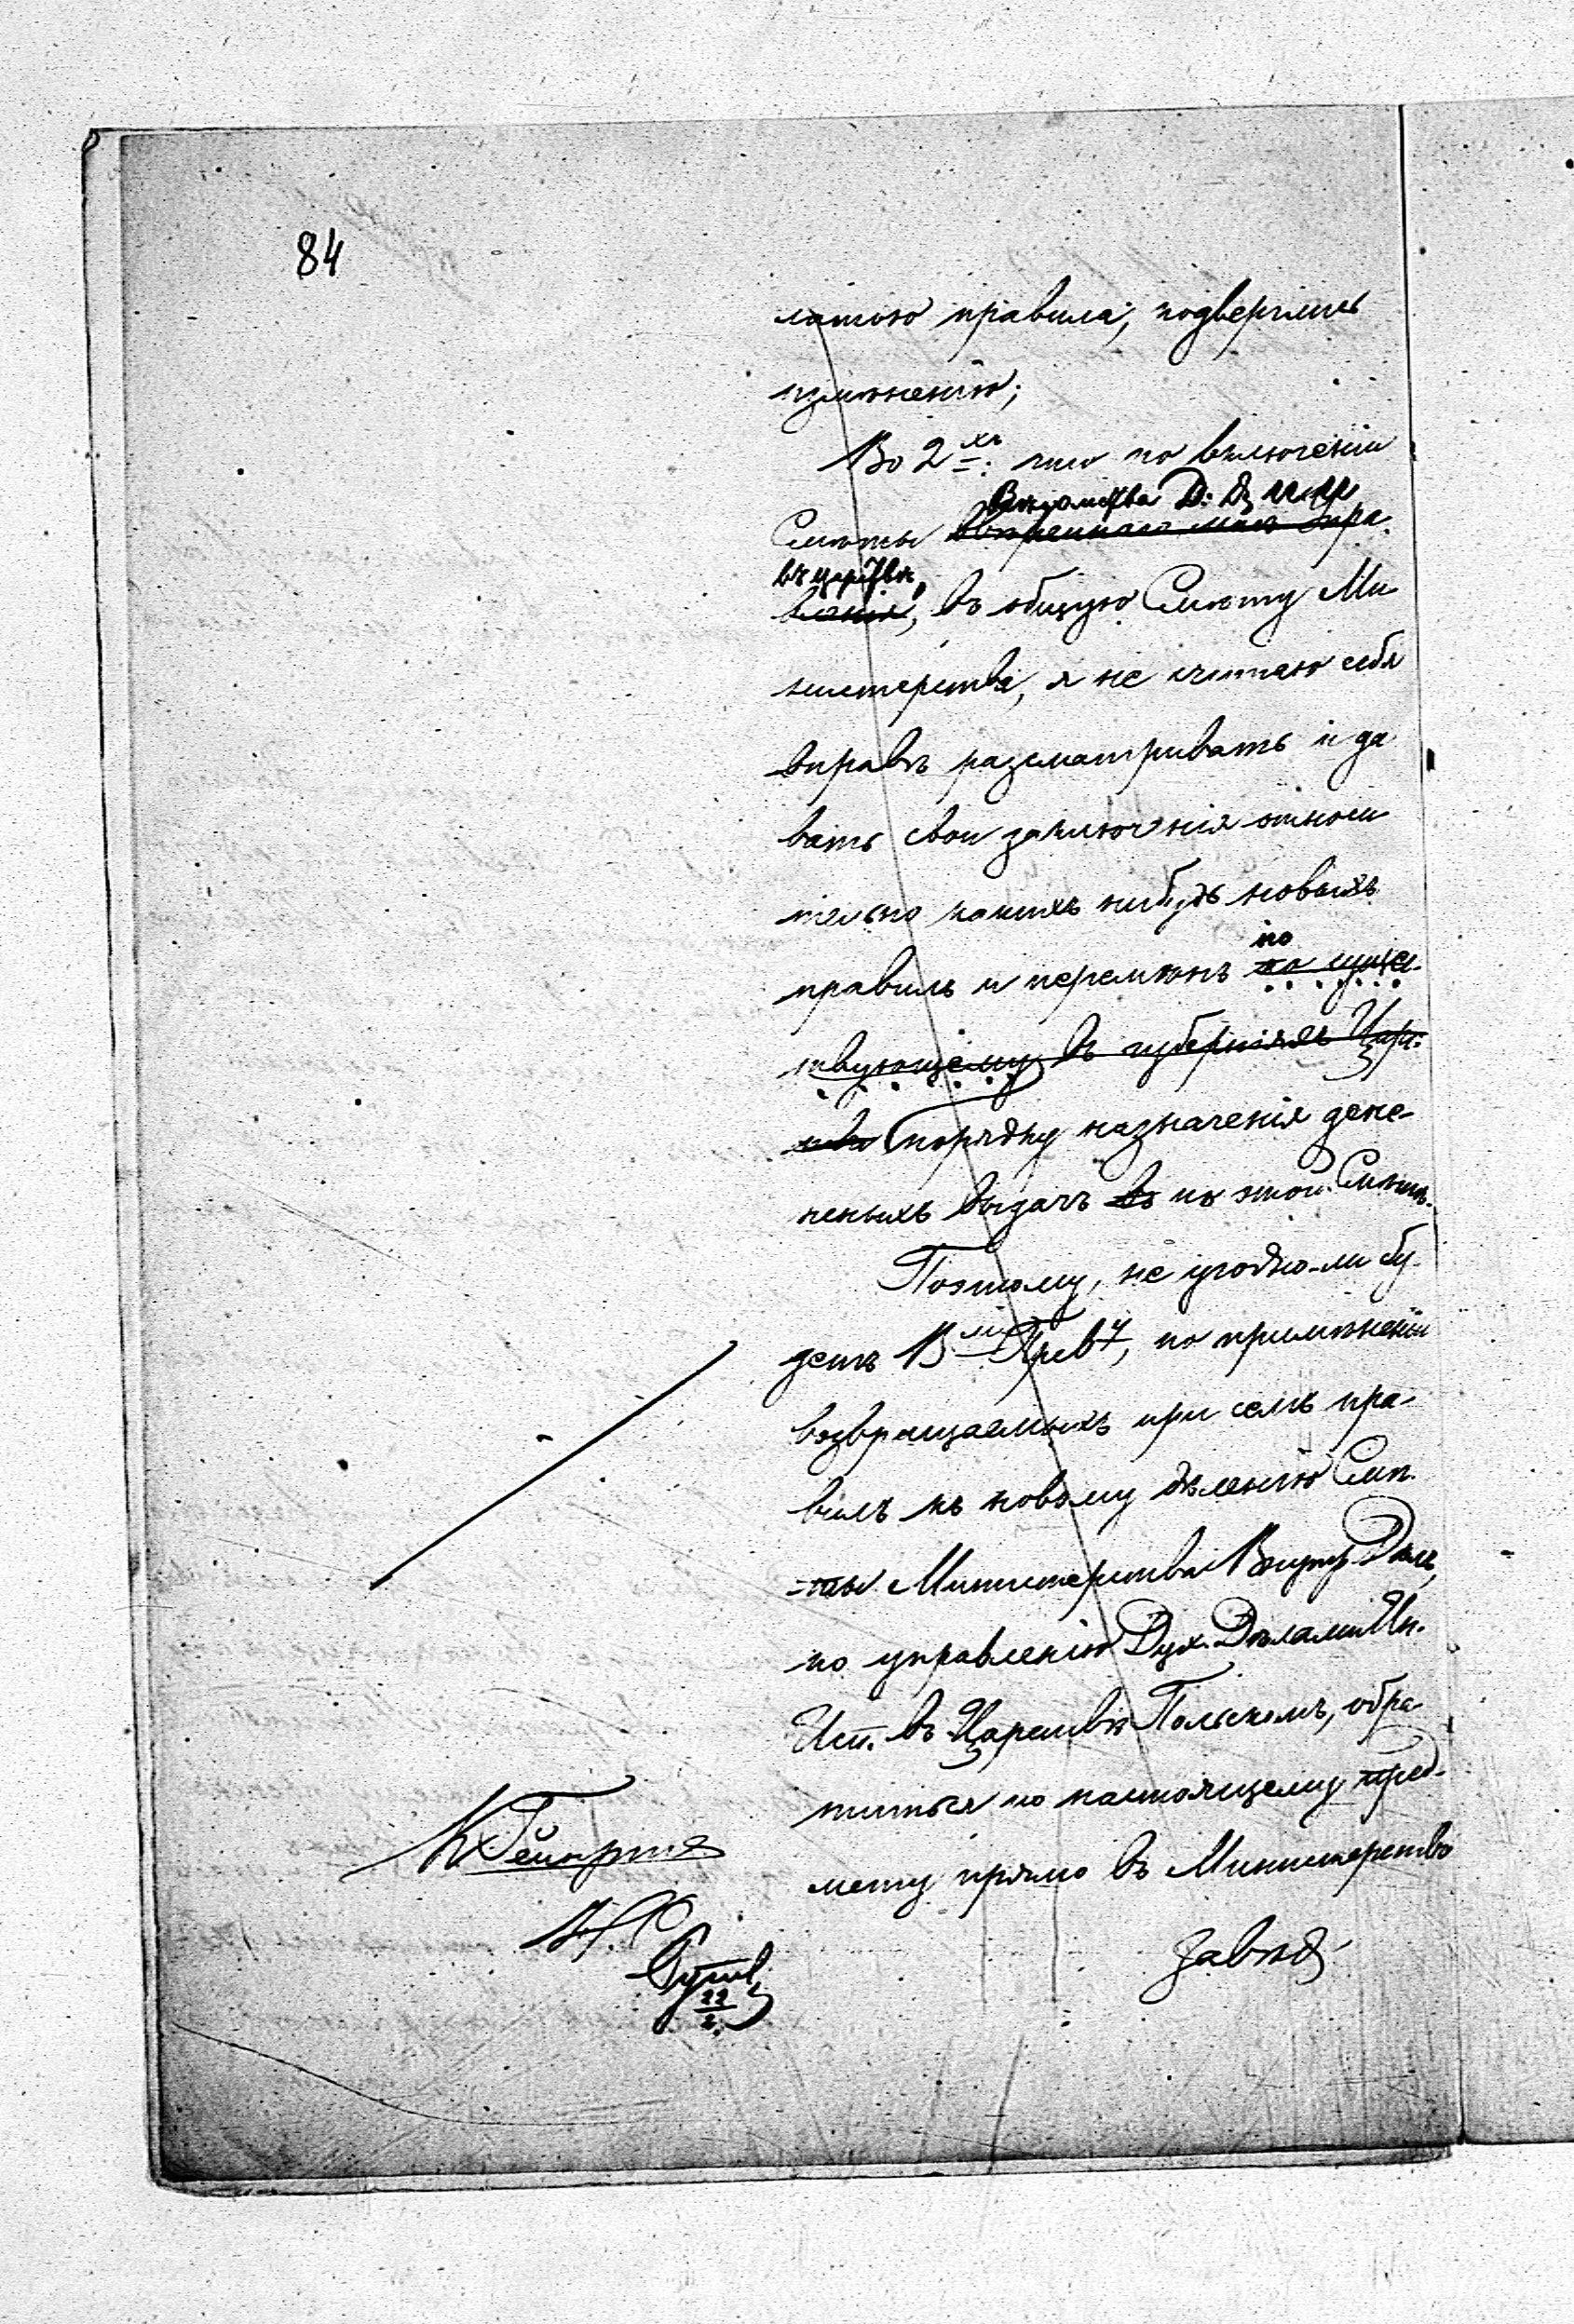 84
латою правила, подверглись
измѣненію;
Во 2хъ: что по включеніи
Вѣдомства Д: Д. И. И.
Смѣты ввѣреннаго мнѣ Упра
въ Царствѣ,
вленія, въ общую Смѣту Ми
нистерства, я не считаю себя
вправѣ разсматривать и да
вать свои заключенія относи
тельно какихъ нибудь новыхъ
по
правилъ и перемѣнъ по суще-
ствующему въ губерніяхъ Цар:
ства порядку назначенія дене-
жныхъ выдачъ въ по этой Смѣтѣ.
Поэтому, не угодно-ли бу-
детъ В Прев, по примѣненіи
возвращаемыхъ при семъ пра-
вилъ къ новому дѣленію Смѣ-
-ты Министерства Внутр. Дѣлъ,
по управленію Дух. Дѣлами Ин.
Исп. въ Царствѣ Польскомъ, обра
титься по настоящему пред-
мету прямо въ Министерство
Завѣд.
22
2.